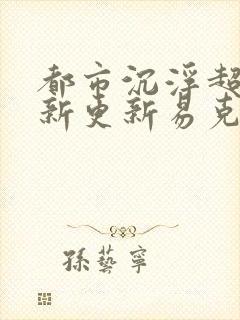 都市沉浮超
新更新易克
孫藝寧